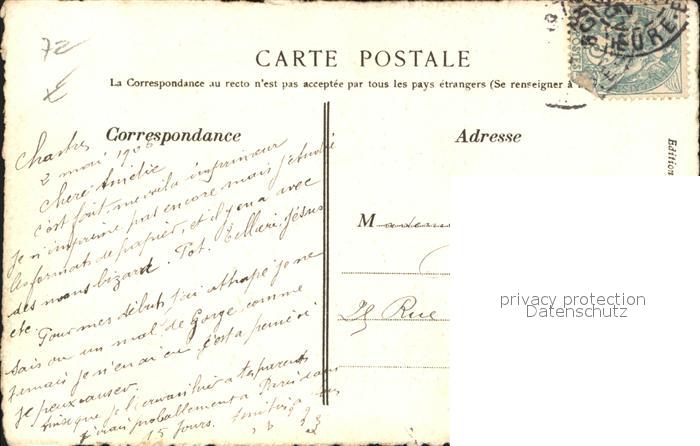 72
CARTE POSTALE
La Correspondance au recto n'est pas acceptée par tous les pays étrangers (Se renseigner à
Correspondance
Adresse
Edition
Chartres
2 mai 190
Chere Amélie
c'est fait, me voila imprimeur
je n'imprime pas encore mais j'étudie
les formats de papier, et il y en a avec
des noms bizard. Pot. Tellière, Jésus
etc.
Pour mes débuts j'ai athapé je ne
sais ou un mal de Gorge comme
jamais je n'en ai eu c'est a peine si
je peux causer.
que je l'ecrivais hier a tes parents
j'irai probablement a Paris dans
15 jours.
Madem
21 Rue
privacy protection
Datenschutz